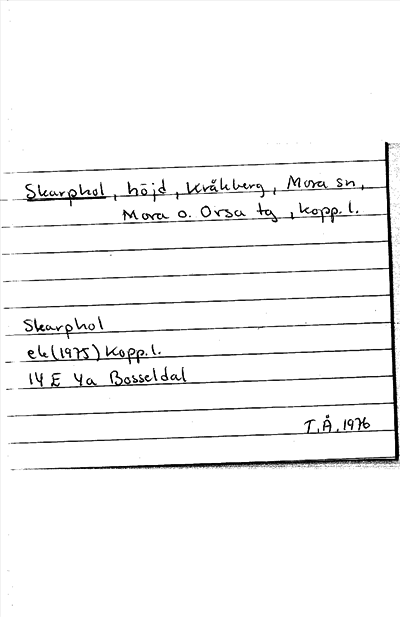 Skarphol, höjd, Kråkberg, Mora sn,
Mora o. Orsa tg, Kopp. l.
Skarphol
ek (1975) Kopp. l.
14 E 4a Bosseldal
T.Å. 1976